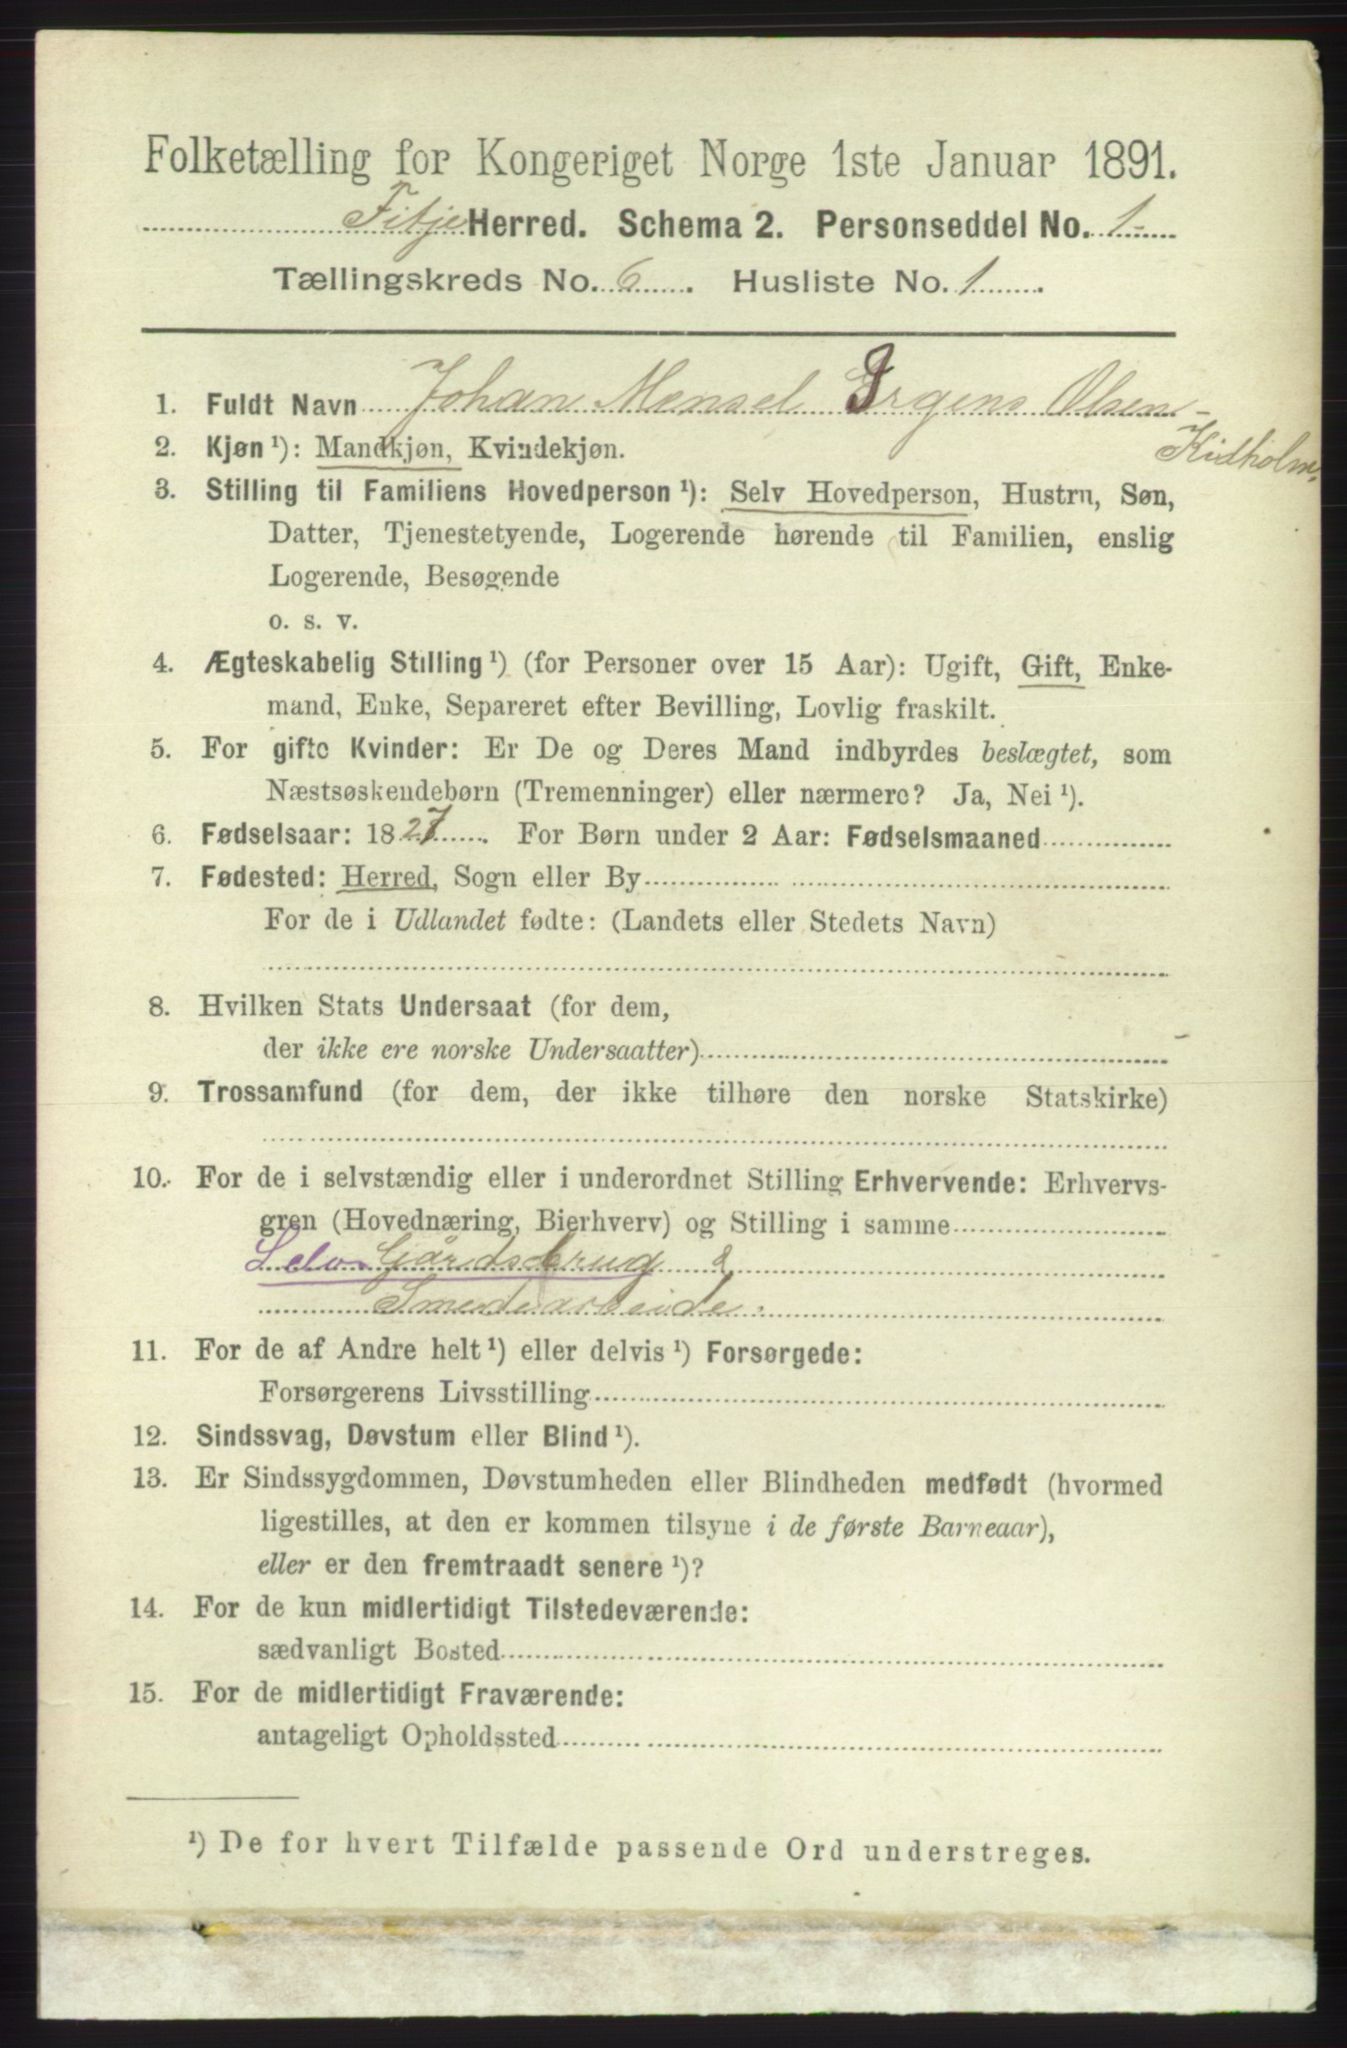 Folketælling for Kongeriget Norge 1ste Januar 1891.
Fitje Herred. Schema 2. Personseddel No. 1
Tællingskreds No. 6. Husliste No. 1.
1. Fuldt Navn Johan Mensel Jrgens Olsen
Kidholm.
2. Kjøn ¹): Mandkjøn, Kvindekjøn.
3. Stilling til Familiens Hovedperson ¹): Selv Hovedperson, Hustru, Søn,
Datter, Tjenestetyende, Logerende hørende til Familien, enslig
Logerende, Besøgende
o. s. v.
4. Ægteskabelig Stilling ¹) (for Personer over 15 Aar): Ugift, Gift, Enke-
mand, Enke, Separeret efter Bevilling, Lovlig fraskilt.
5. For gifte Kvinder: Er De og Deres Mand indbyrdes beslægtet, som
Næstsøskendebørn (Tremenninger) eller nærmere? Ja, Nei ¹).
6. Fødselsaar: 1827. For Børn under 2 Aar: Fødselsmaaned
7. Fødested: Herred, Sogn eller By
For de i Udlandet fødte: (Landets eller Stedets Navn)
8. Hvilken Stats Undersaat (for dem,
der ikke ere norske Undersaatter)
9. Trossamfund (for dem, der ikke tilhøre den norske Statskirke)
10. For de i selvstændig eller i underordnet Stilling Erhvervende: Erhvervs-
gren (Hovednæring, Bierhverv) og Stilling i samme
Selv Gårdsbrug &
Smedearbeide.
11. For de af Andre helt ¹) eller delvis ¹) Forsørgede:
Forsørgerens Livsstilling
12. Sindssvag, Døvstum eller Blind ¹).
13. Er Sindssygdommen, Døvstumheden eller Blindheden medfødt (hvormed
ligestilles, at den er kommen tilsyne i de første Barneaar),
eller er den fremtraadt senere ¹)?
14. For de kun midlertidigt Tilstedeværende:
sædvanligt Bosted
15. For de midlertidigt Fraværende:
antageligt Opholdssted
¹) De for hvert Tilfælde passende Ord understreges.